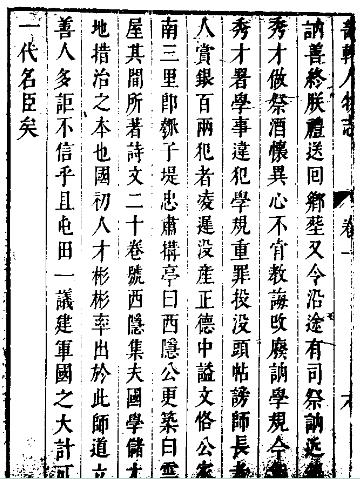 畿輔人物志 卷一
訥善終朕禮送回鄉塟又令沿途有司祭訥近
秀才做祭酒懷異心不肯教誨改廢訥學規今
秀才署學事違犯學規重罪投没頭帖謗師長者
人賞銀百兩犯者凌遲没産正德中謚文恪公家
南三里即子堤忠肅搆亭曰西隱公更築曰雲
屋其間所著詩文二十卷號西隱集夫國學儲才
地措治之本也國初人才彬彬率出於此師道立
善人多詎不信乎且屯田一議建軍國之大計可
一代名臣矣